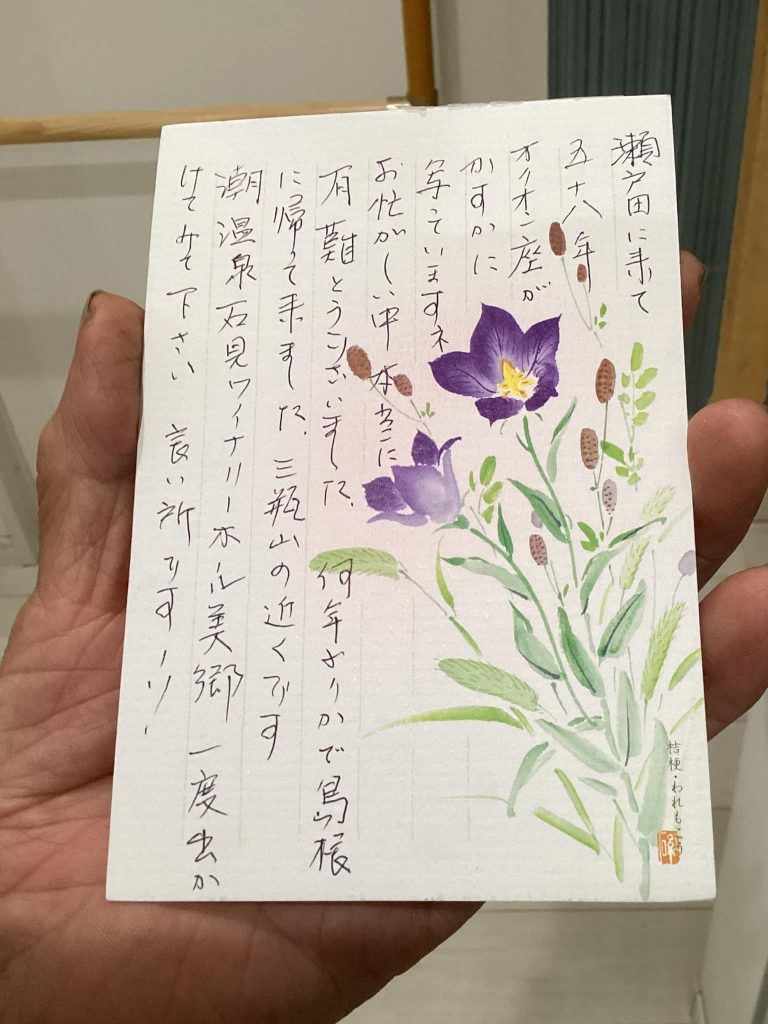 瀬戸田に来て
五十八年
オリオン座が
かすかに
写っていますネ
お忙がしい中本当に
有難とうございました、何年ぶりかで島根
に帰って来ました、三瓶山の近くです
潮温泉石見ワイナリーホテル美郷一度出か
けてみて下さい 良い所ですヨ!
桔梗・われもこう